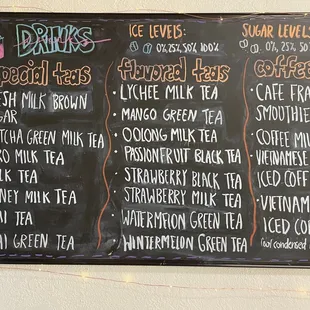 DRINKS
ICE LEVELS:
0%, 25%, 50%, 100%
SUGAR LEVELS
0%, 25%, 50%
pecial teas
ESH MILK BROWN
GAR
TCHA GREEN MILK TEA
RO MILK TEA
LK TEA
NEY MILK TEA
AI TEA
AI GREEN TEA
flavored teas
• LYCHEE MILK TEA
• MANGO GREEN TEA
• OOLONG MILK TEA
• PASSIONFRUIT BLACK TEA
• STRAWBERRY BLACK TEA
• STRAWBERRY MILK TEA
• WATERMELON GREEN TEA
• WINTERMELON GREEN TEA
coffee
• CAFE FRA
SMOOTHIE
• COFFEE MIL
• VIETNAMESE
ICED COFF
• VIETNAM
ICED CO
(w/ condensed